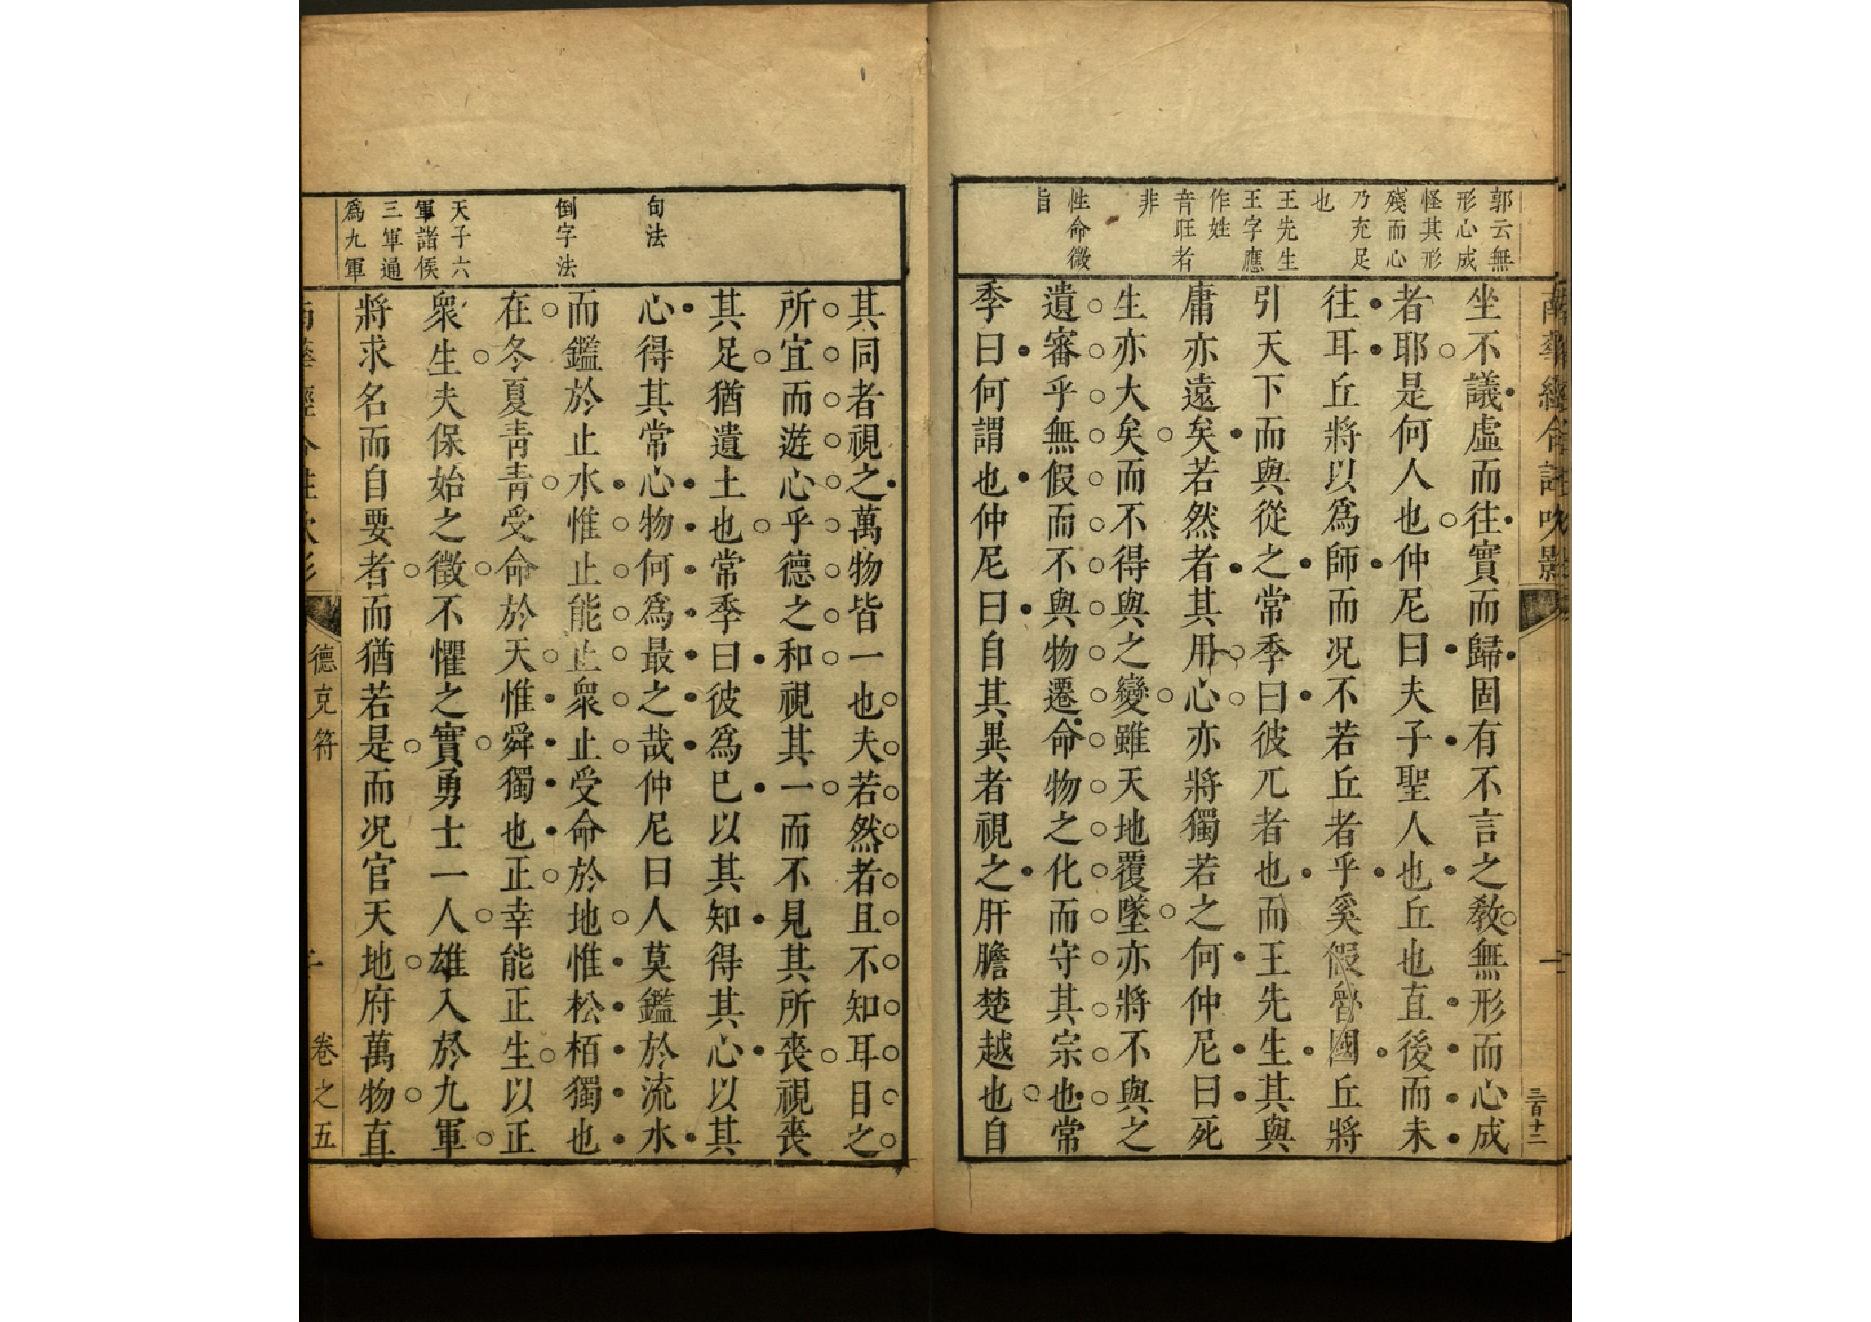 郭云無
形心成
怪其形
殘而心
乃充足
也
王先生
王字應
作姓
音旺者
非
性命微
旨
坐不議虛而往實而歸固有不言之教無形而心成
者耶是何人也仲尼曰夫子聖人也丘也直後而未
往耳丘將以爲師而况不若丘者乎奚假魯國丘將
引天下而與從之常季曰彼兀者也而王先生其與
庸亦遠矣若然者其用心亦將獨若之何仲尼曰死
生亦大矣而不得與之變雖天地覆墜亦將不與之
遺審乎無假而不與物遷命物之化而守其宗也常
季曰何謂也仲尼曰自其異者視之肝膽楚越也自
三百十二
句法
倒字法
天子六
軍諸侯
三軍通
爲九軍
其同者視之萬物皆一也夫若然者且不知耳目之
所宜而遊心乎德之和視其一而不見其所喪視喪
其足猶遺土也常季曰彼爲已以其知得其心以其
心得其常心物何爲最之哉仲尼曰人莫鑑於流水
而鑑於止水惟止能止衆止受命於地惟松栢獨也
在冬夏青青受命於天惟舜獨也正幸能正生以正
衆生夫保始之徵不懼之實勇士一人雄入於九軍
將求名而自要者而猶若是而况官天地府萬物直
德克符
卷之五